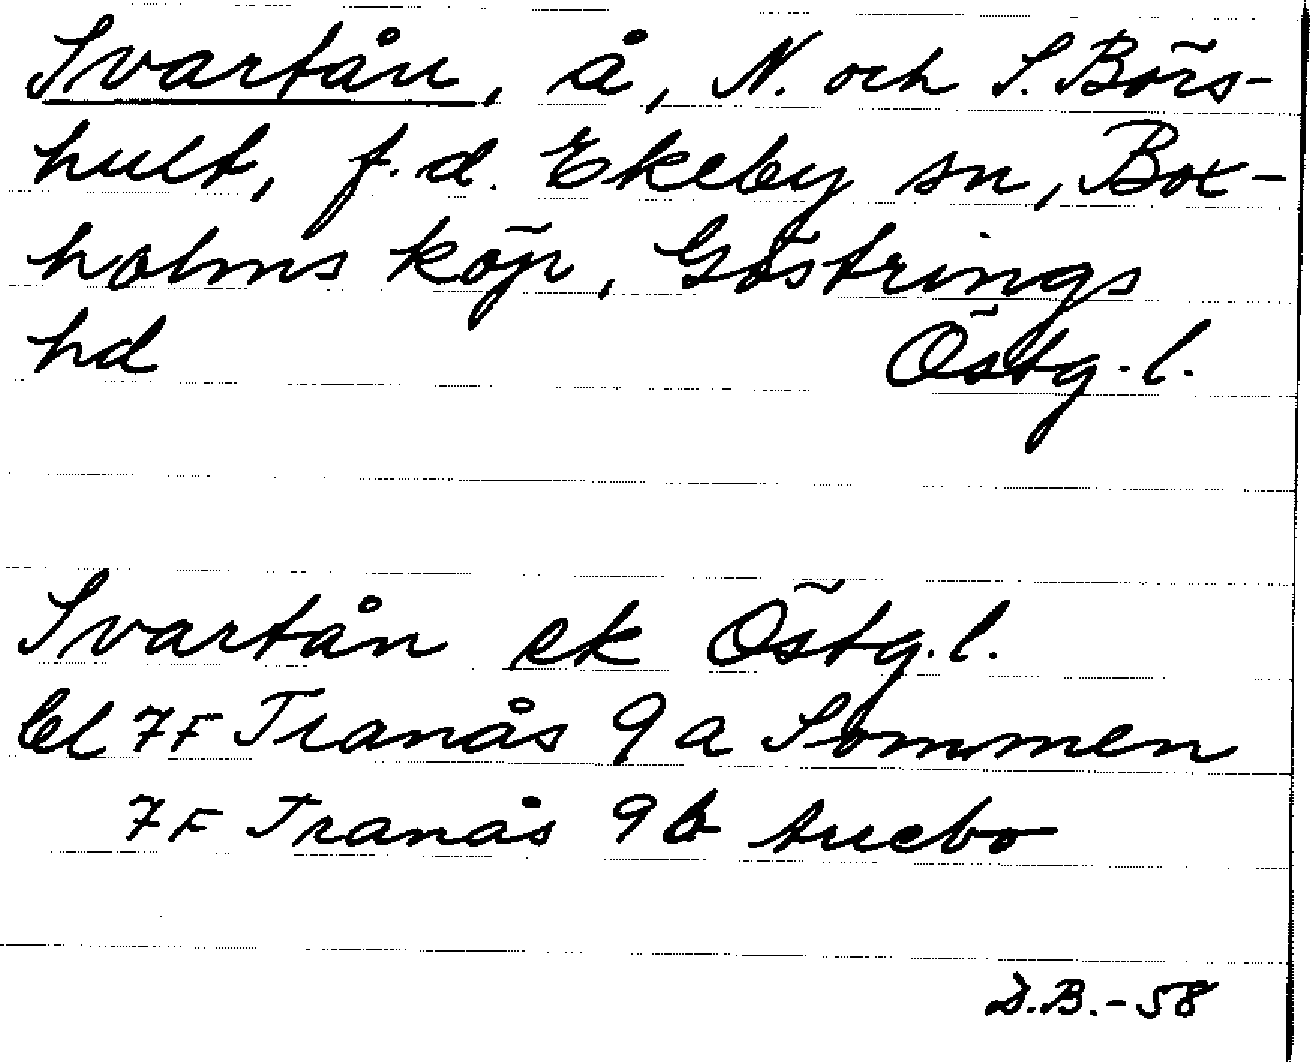 Svartån, å, N. och S. Börs-
hult, f.d. Ekeby sn, Box-
holms köp, Göstrings
hd Östg. l.
Svartån ek Östg. l.
bl 7F Tranås 9a Sommen
7F Tranås 9b
D.B.-58